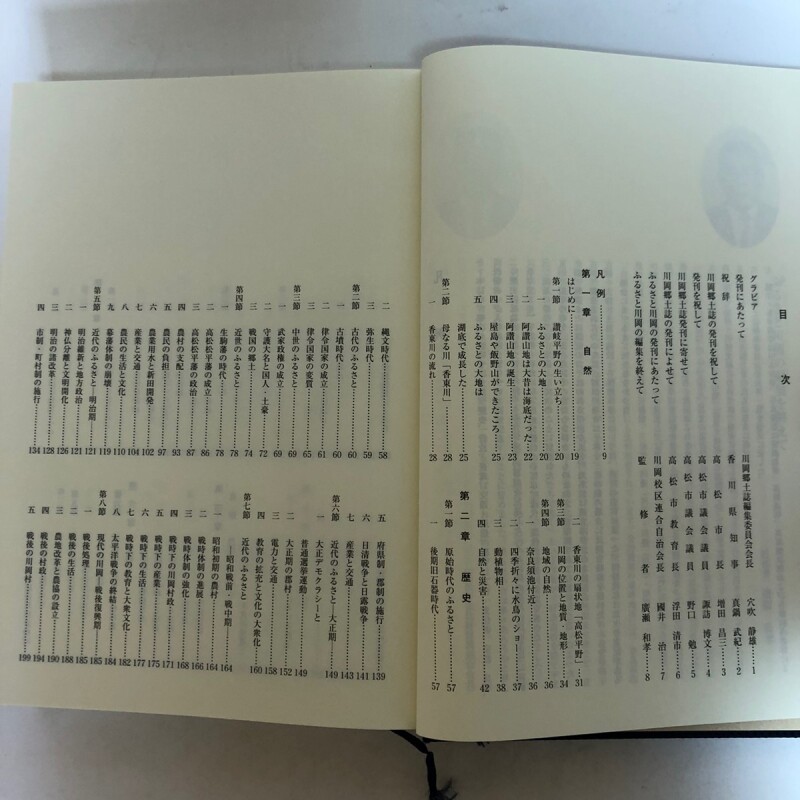 目次
グラビア
発刊にあたって 川岡郷土誌編集委員会会長 穴吹 静雄……1
祝辞 香川県知事 真鍋 武紀……2
川岡郷土誌の発刊を祝して 高松市長 増田 昌三……3
発刊を祝して 高松市議会議員 諏訪 博文……4
川岡郷土誌発刊に寄せて 高松市議会議員 野口 勉……5
川岡郷土誌の発刊によせて 高松市教育長 浮田 清市……6
ふるさと川岡の発刊にあたって 川岡校区連合自治会長 國井 治……7
ふるさと川岡の編集を終えて 監修者 廣瀬 和孝……8
凡例……9
第一章 自然
はじめに……19
第一節 讃岐平野の生い立ち……20
一 ふるさとの大地……20
二 阿讃山地は大昔は海底だった……22
三 阿讃山地の誕生……23
四 屋島や飯野山ができたころ……25
五 ふるさとの大地は
湖底で成長した……25
第二節 母なる川「香東川」……28
一 香東川の流れ……28
二 香東川の扇状地「高松平野」……31
第三節 川岡の位置と地質・地形……34
第四節 地域の自然……36
一 奈良須池付近……36
二 四季折々に水鳥のショー……37
三 動植物相……38
四 自然と災害……42
第二章 歴史
第一節 原始時代のふるさと……57
一 後期旧石器時代……57
二 縄文時代……58
三 弥生時代……59
第二節 古代のふるさと……60
一 古墳時代……60
二 律令国家の成立……61
三 律令国家の変質……65
第三節 中世のふるさと……69
一 武家政権の成立……69
二 守護大名と国人・土豪……72
三 戦国の郷土……74
第四節 近世のふるさと……78
一 生駒藩の時代……78
二 高松松平藩の成立……86
三 高松松平藩の政治……87
四 農村の支配……93
五 農民の負担……97
六 農業用水と新田開発……102
七 産業と交通……104
八 農民の生活と文化……110
九 幕藩体制の崩壊……119
第五節 近代のふるさと―明治期……121
一 明治維新と地方政治……121
二 神仏分離と文明開化……126
三 明治の諸改革……128
四 市制・町村制の施行……134
五 府県制・郡制の施行……139
六 日清戦争と日露戦争……141
七 産業と交通……143
第六節 近代のふるさと―大正期……149
一 大正デモクラシーと
普通選挙運動……149
二 大正期の郡村……152
三 電力と交通……158
四 教育の拡充と文化の大衆化……160
第七節 近代のふるさと
―昭和戦前・戦中期……164
一 昭和初期の農村……164
二 戦時体制の進展……166
三 戦時体制の強化……168
四 戦時下の川岡村政……171
五 戦時下の産業……175
六 戦時下の生活……177
七 戦時下の教育と大衆文化……182
八 太平洋戦争の終結……184
第八節 現代の川岡―戦後復興期……185
一 戦後処理……185
二 戦後の生活……188
三 農地改革と農協の設立……190
四 戦後の村政……194
五 戦後の川岡村……199